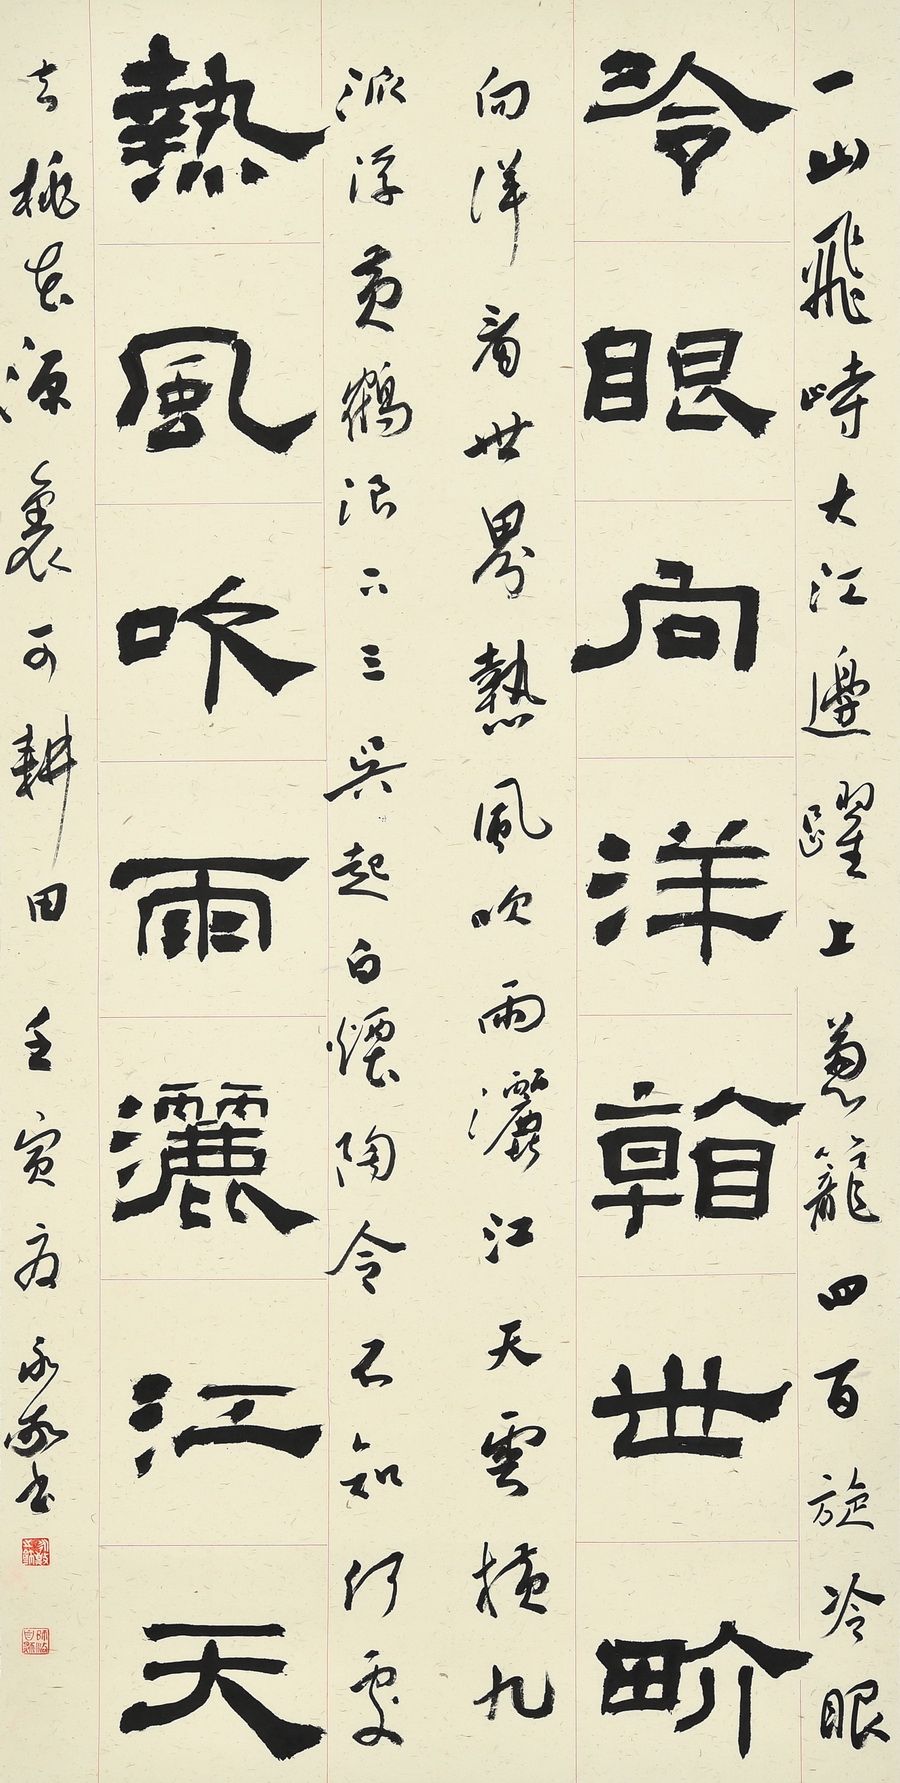 一山飛峙大江邊躍上葱籠四百旋冷眼
冷眼向洋看世畍
向洋看世界熱風吹雨灑江天雲橫九
派浮黃鶴浪下三吳起白煙陶令不知何處
熱風吹雨灑江天
去桃花源裏可耕田壬寅夏永敬書